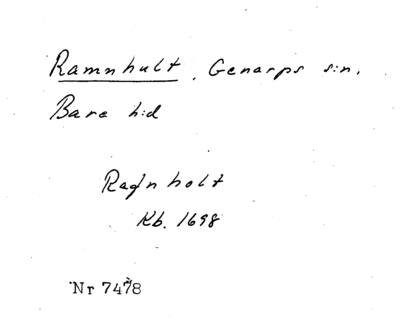 Ramnhult, Genarps sn.
Bara hd
Ragnholt
Kb. 1698
Nr 7478